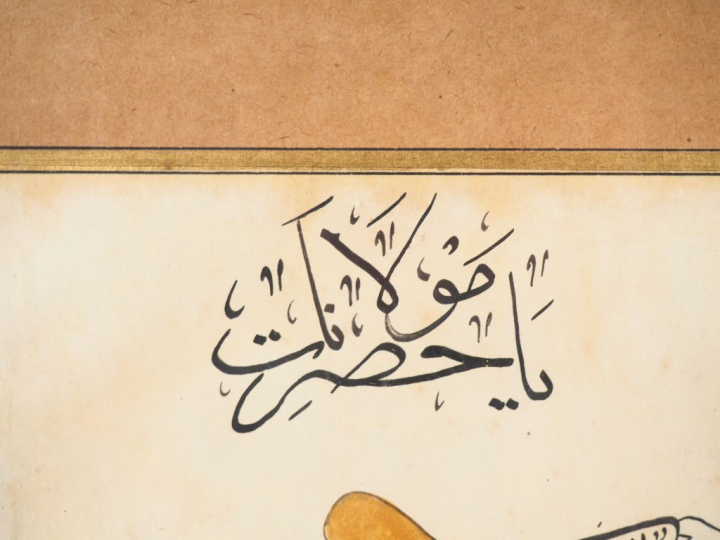 يا حضرت مولانا